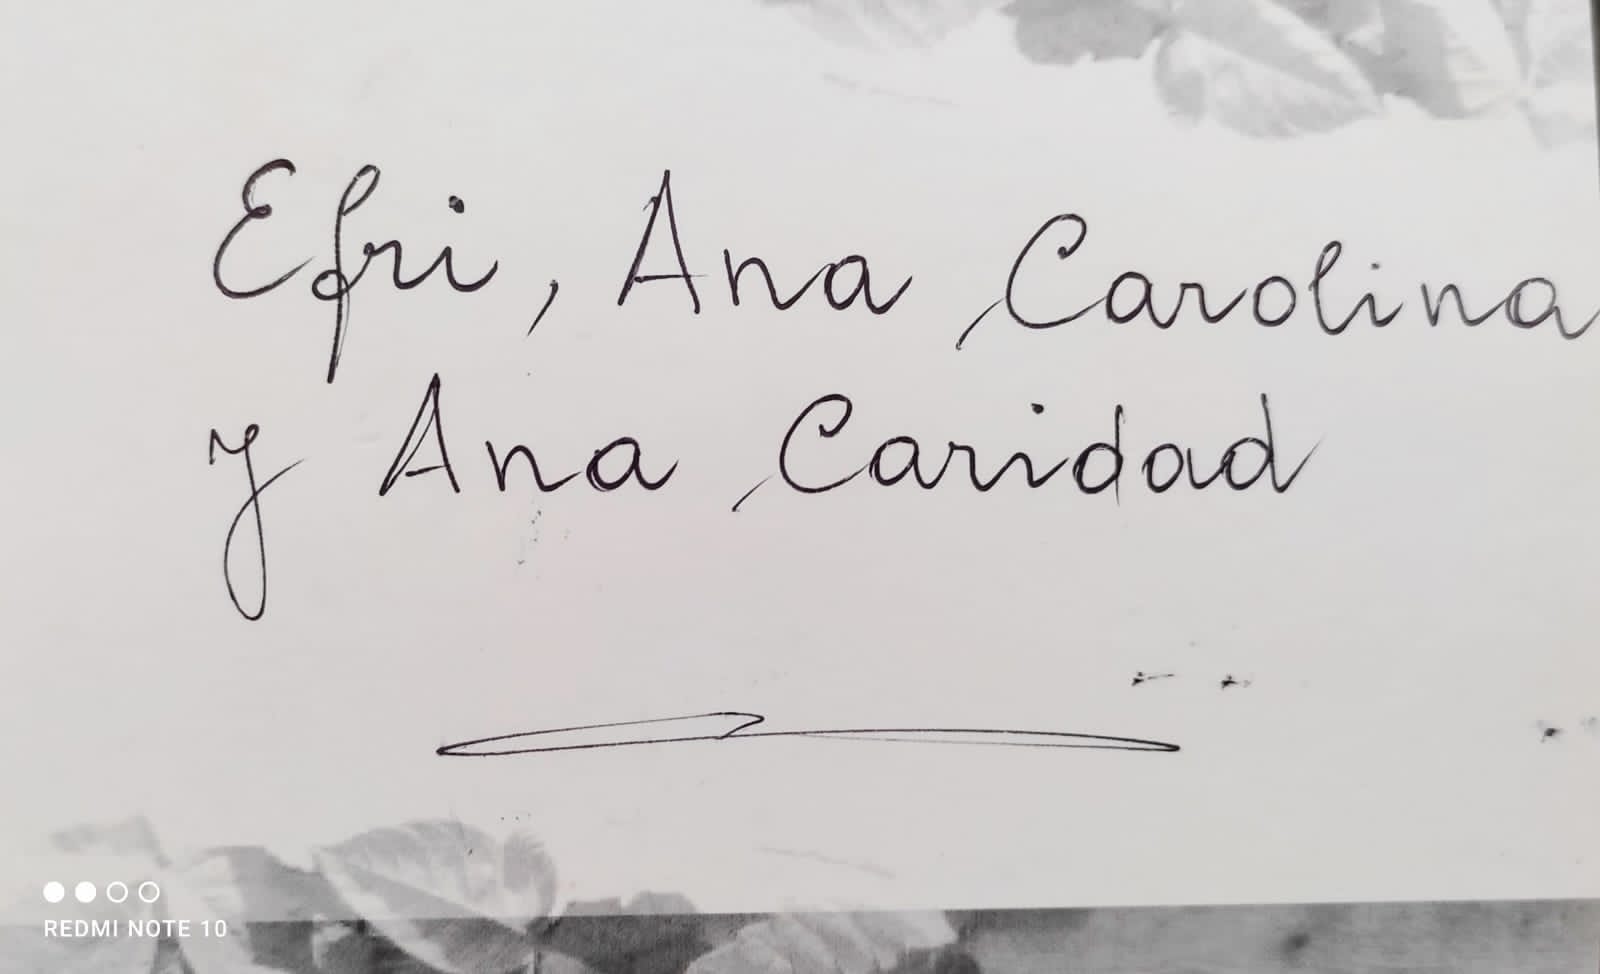 Efri, Ana Carolina
y Ana Caridad
REDMI NOTE 10